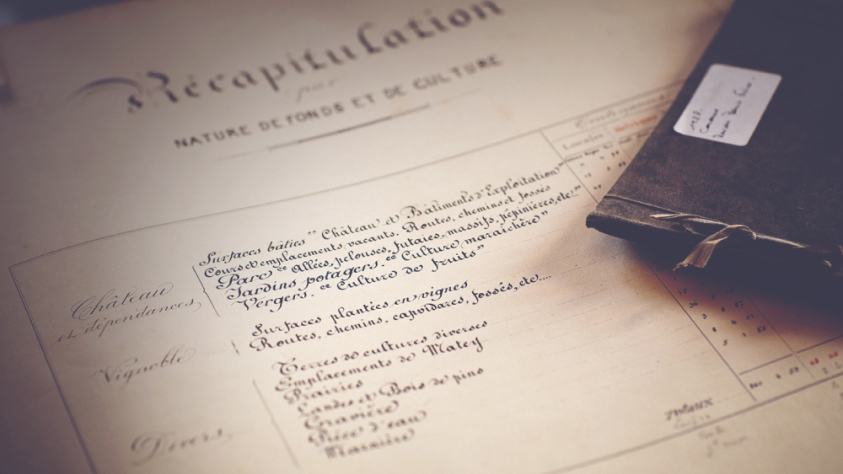 Récapitulation
par
NATURE DE FONDS ET DE CULTURE
Contenances
Château
et dépendances
Surfaces bâties "Château et Bâtiments d'Exploitation"
Cours et emplacements vacants, Routes, chemins et fossés
Parc "Allées, pelouses, futaies, massifs, pépinières, etc."
Jardins potagers. "Culture maraîchère"
Vergers. "Culture de fruits"
Vignoble
Surfaces plantées en vignes
Routes, chemins, capvirades, fossés, etc....
Divers
Terres de cultures diverses
Emplacements de Matey
Prairies
Landes et Bois de pins
Gravière
Pièce d'eau
Marnière
Totaux